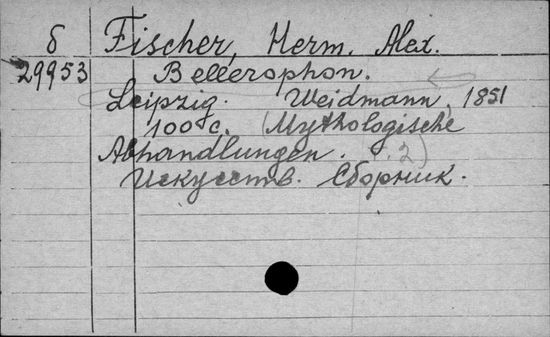 б Fischer, Herm. Alex.
29953 Bellerophon.
Leipzig. Weidmann, 1851
100 с. (Mythologische
Abhandlungen. т. 2)
Искусств. Сборник.